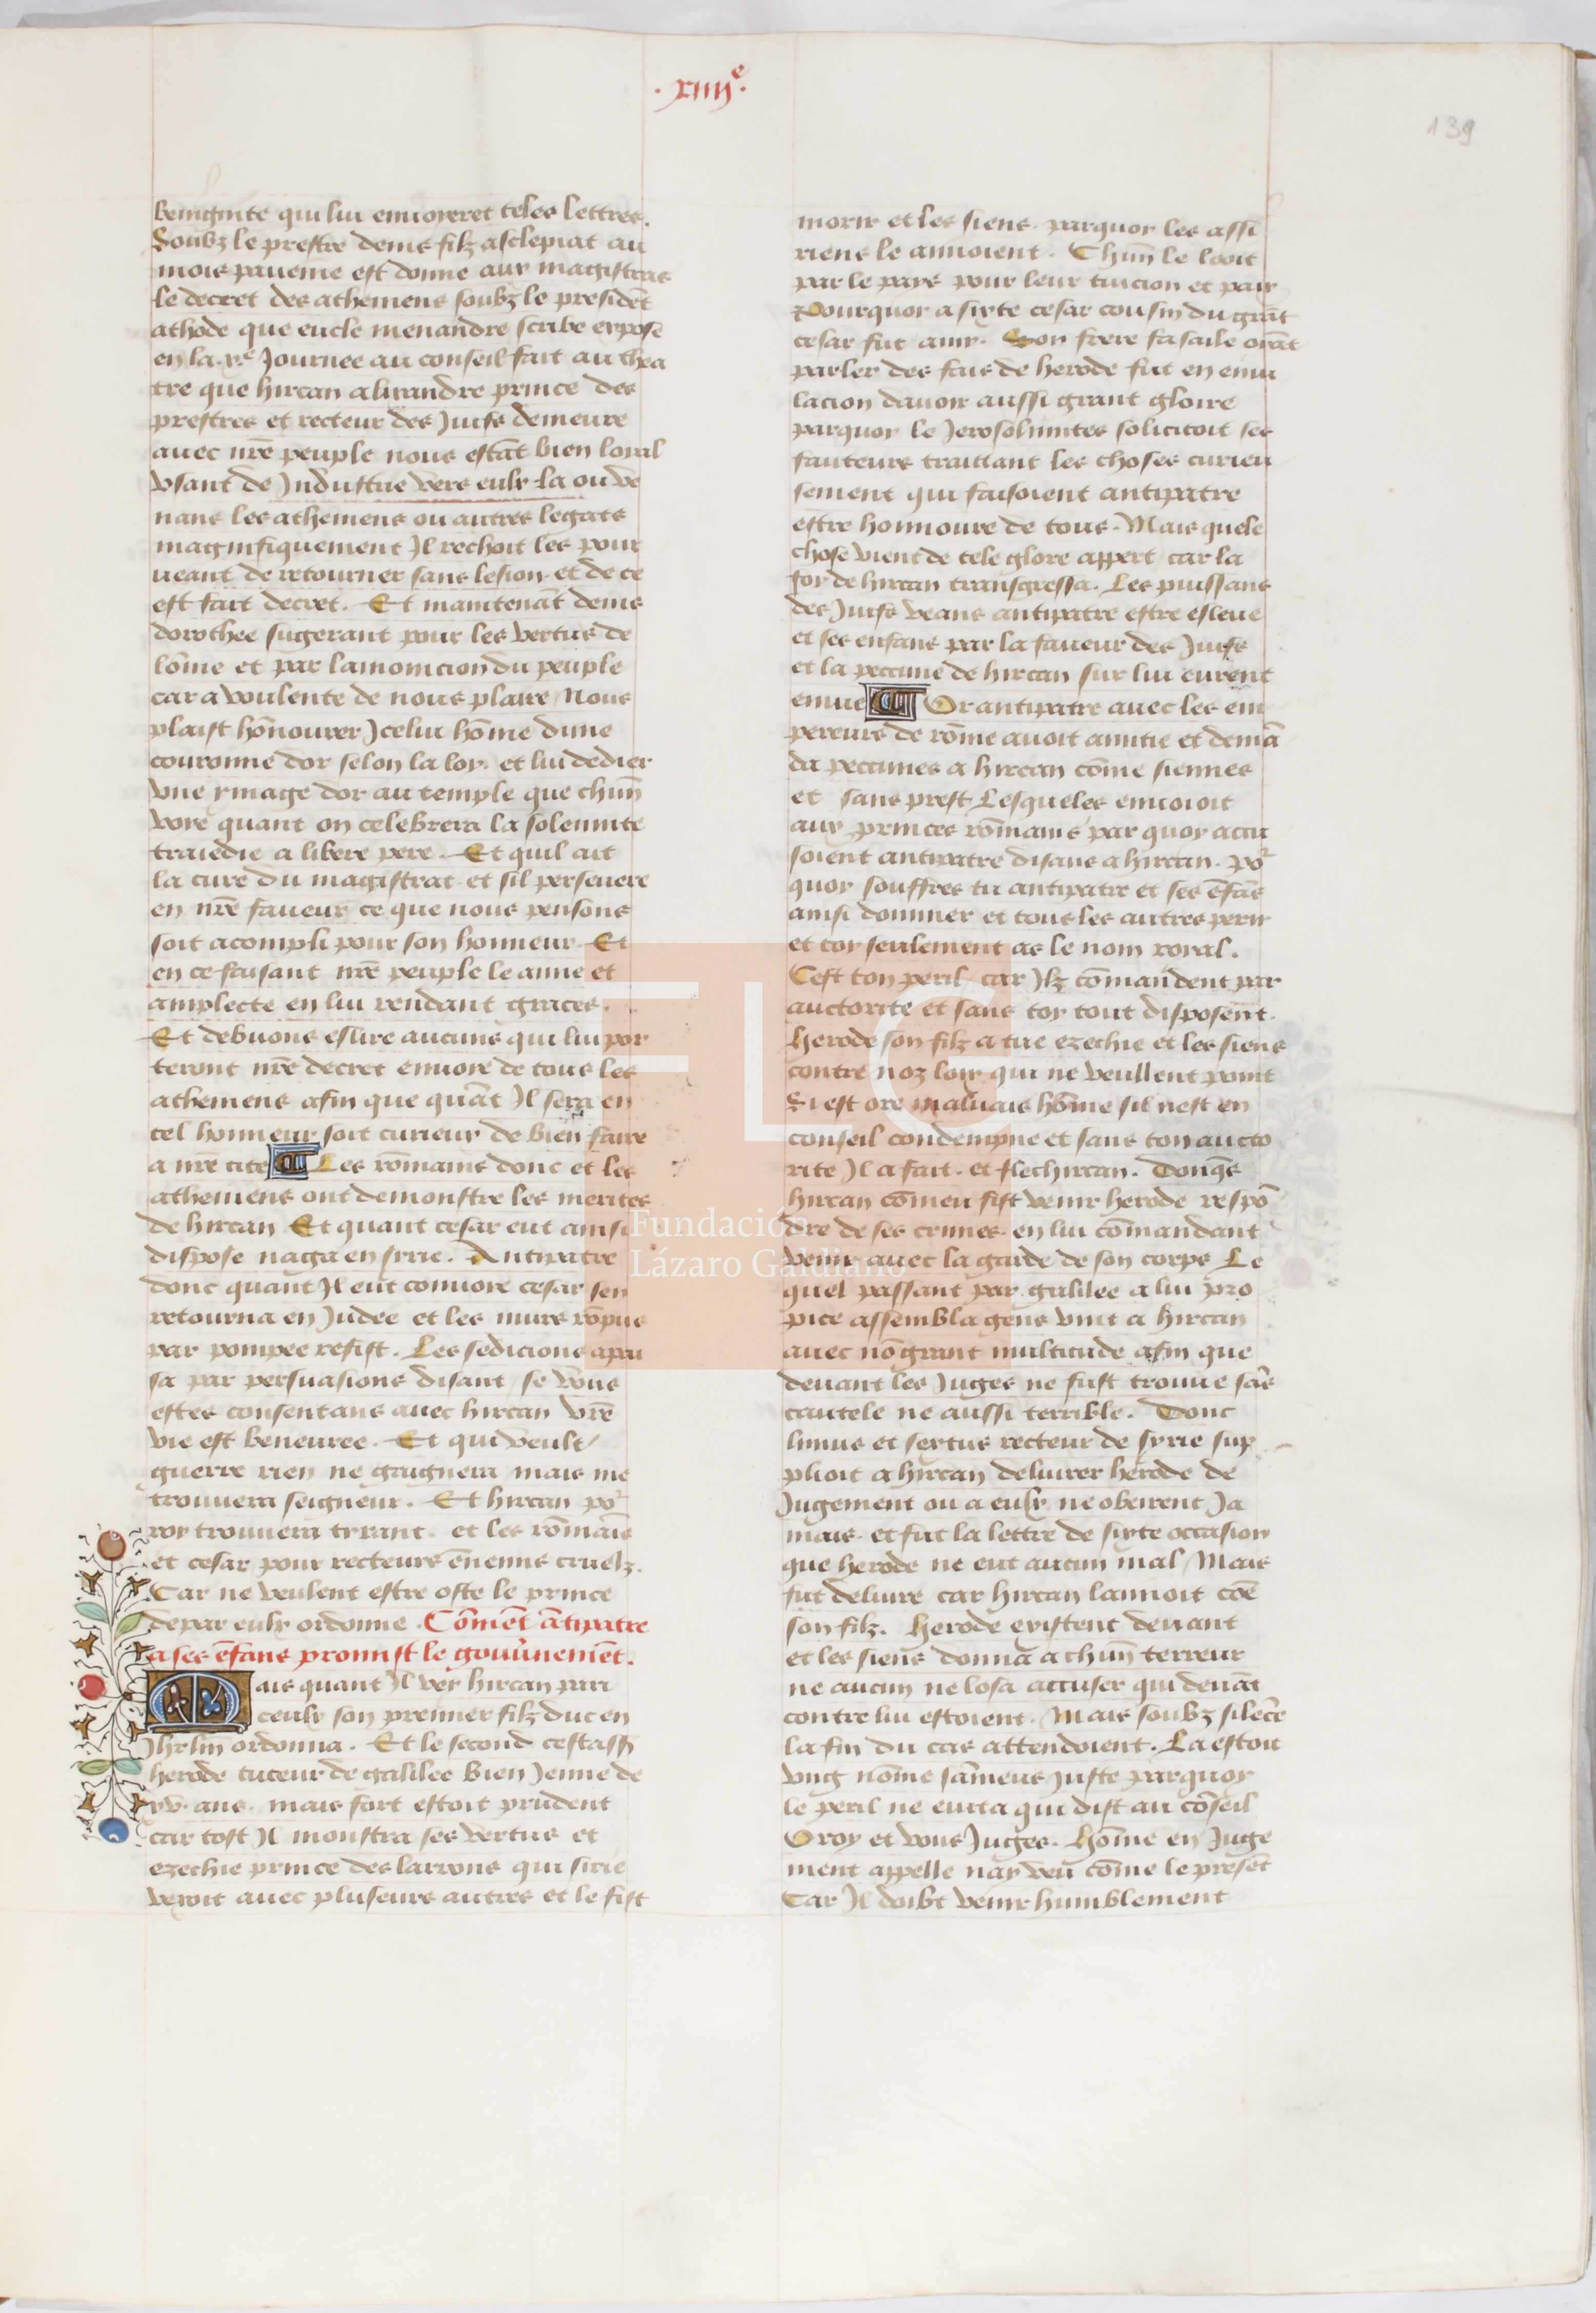 .xiiij.e
139
benignite qui lui enuoyeret teles lettres.
Soubz le prestre denis filz asclepiat au
mois paueme est donne aux magistras
le decret des atheniens soubz le presidēt
athode que eucle menandre scribe expose
en la .xe. Journee au conseil fait au thea
tre que hircan alixandre prince des
prestres et recteur des Juifs demeure
auec nr̄e peuple nous estāt bien loyal
vsant de Industrie vers eulx la ou ve
nans les atheniens ou autres legats
magnifiquement Il rechoit les pour
ueant de retourner sans lesion et de ce
est fait decret. Et maintenāt denis
dorothee sugerant pour les vertus de
lōme et par lamonicion du peuple
car a voulente de nous plaire Nous
plaist hōnourer Icelui hōme dune
couronne dor selon la loy. et lui dedier
vne ymage dor au temple que chūn
voye quant on celebrera la solennite
traiedie a libere pere. Et quil ait
la cure du magistrat et sil perseuere
en nr̄e faueur ce que nous pensons
soit acompli pour son honneur. Et
en ce faisant nr̄e peuple le aime et
amplecte en lui rendant graces.
Et debuons eslire aucuns qui lui por
teront nr̄e decret enuoye de tous les
atheniens afin que quāt Il sera en
tel honneur soit curieux de bien faire
a nr̄e cite Les rōmains donc et les
atheniens ont demonstre les merites
de hircan Et quant cesar eut ainsi
dispose naga en sirie. Antipatre
donc quant Il eut conuoye cesar sen
retourna en Judee et les murs rōpus
par pompee refist. Les sedicions apai
sa par persuasions disant se vo9
estes consentans auec hircan vr̄e
vie est beneuree. Et qui veult
guerre rien ne gaignera mais me
trouuera seigneur. Et hircan po2
roy trouuera tyrant. et les rōmais
et cesar pour recteurs ēnemis cruelz.
Car ne veulent estre oste le prince
depar eulx ordonne. Cōmēt ātipatre
a ses ēfans promist le gouūnemēt.
Mais quant Il vey hircan pari
ceulx son premier filz duc en
Jhrlm̄ ordonna. Et le second cestass̄
herode tuteur de galilee bien Jenne de
xv. ans. mais fort estoit prudent
car tost Il monstra ses vertus et
ezechie prince des larrons qui sirie
veoit auec pluseurs autres et le fist
morir et les siens. parquoy les assi
riens le amoient. Chūn le looit
par le pays pour leur tuicion et paix
Pourquoy a sixte cesar cousin du grāt
cesar fut amy. Son frere fasaile oyāt
parler des fais de herode fut en emu
lacion dauoir aussi grant gloire
parquoy le Jerosolimites solicitoit ses
fauteurs traittant les choses curieu
sement qui faisoient antipatre
estre honnoure de tous. Mais quele
chose vient de tele glore appert car la
foy de hircan transgressa. Les puissans
des Juifs veans antipatre estre esleue
et ses enfans par la faueur des Juifs
et la pecune de hircan sur lui eurent
enuie Or antipatre auec les em
pereurs de rōme auoit amitie et demā
da pecunes a hircan cōme siennes
et sans prest Lesqueles enuoioit
aux princes rōmains par quoy accu
soient antipatre disans a hircan. po2
quoy souffres tu antipatre et ses ēfās
ainsi dominer et tous les autres perir
et toy seulement as le nom royal.
Cest ton peril car Ilz cōmandent par
auctorite et sans toy tout disposent.
herode son filz a tue ezechie et les siens
contre noz loix qui ne veullent point
Si est ore maluais hōme sil nest en
conseil condempne et sans ton aucto
rite Il a fait. et flechircan. Donq̄s
hircan cōmeu fist venir herode respō
dre de ses crimes en lui cōmandant
venir auec la garde de son corps Le
quel passant par galilee a lui pro
pice assembla gens vint a hircan
auec nō grant multitude afin que
deuant les Juges ne fust trouue sās
cautele ne aussi terrible. Donc
limus et sextus recteur de syrie sup
plioit a hircan deliurer herode de
Jugement ou a eulx ne obeirent Ja
mais. et fut la lettre de sixte occasion
que herode ne eut aucun mal Mais
fut deliure car hircan lamoit cōe
son filz. herode existent deuant
et les siens donna a chūn terreur
ne aucun ne losa accuser qui deuāt
contre lui estoient. Mais soubz silēce
la fin du cas attendoient. La estoit
vng nōme sameus Juste parquoy
le peril ne euita qui dist au cōseil
O roy et vous Juges. hōme en Juge
ment appelle nay veu cōme le presēt
Car Il doibt venir humblement
Fundación
Lázaro Galdiano